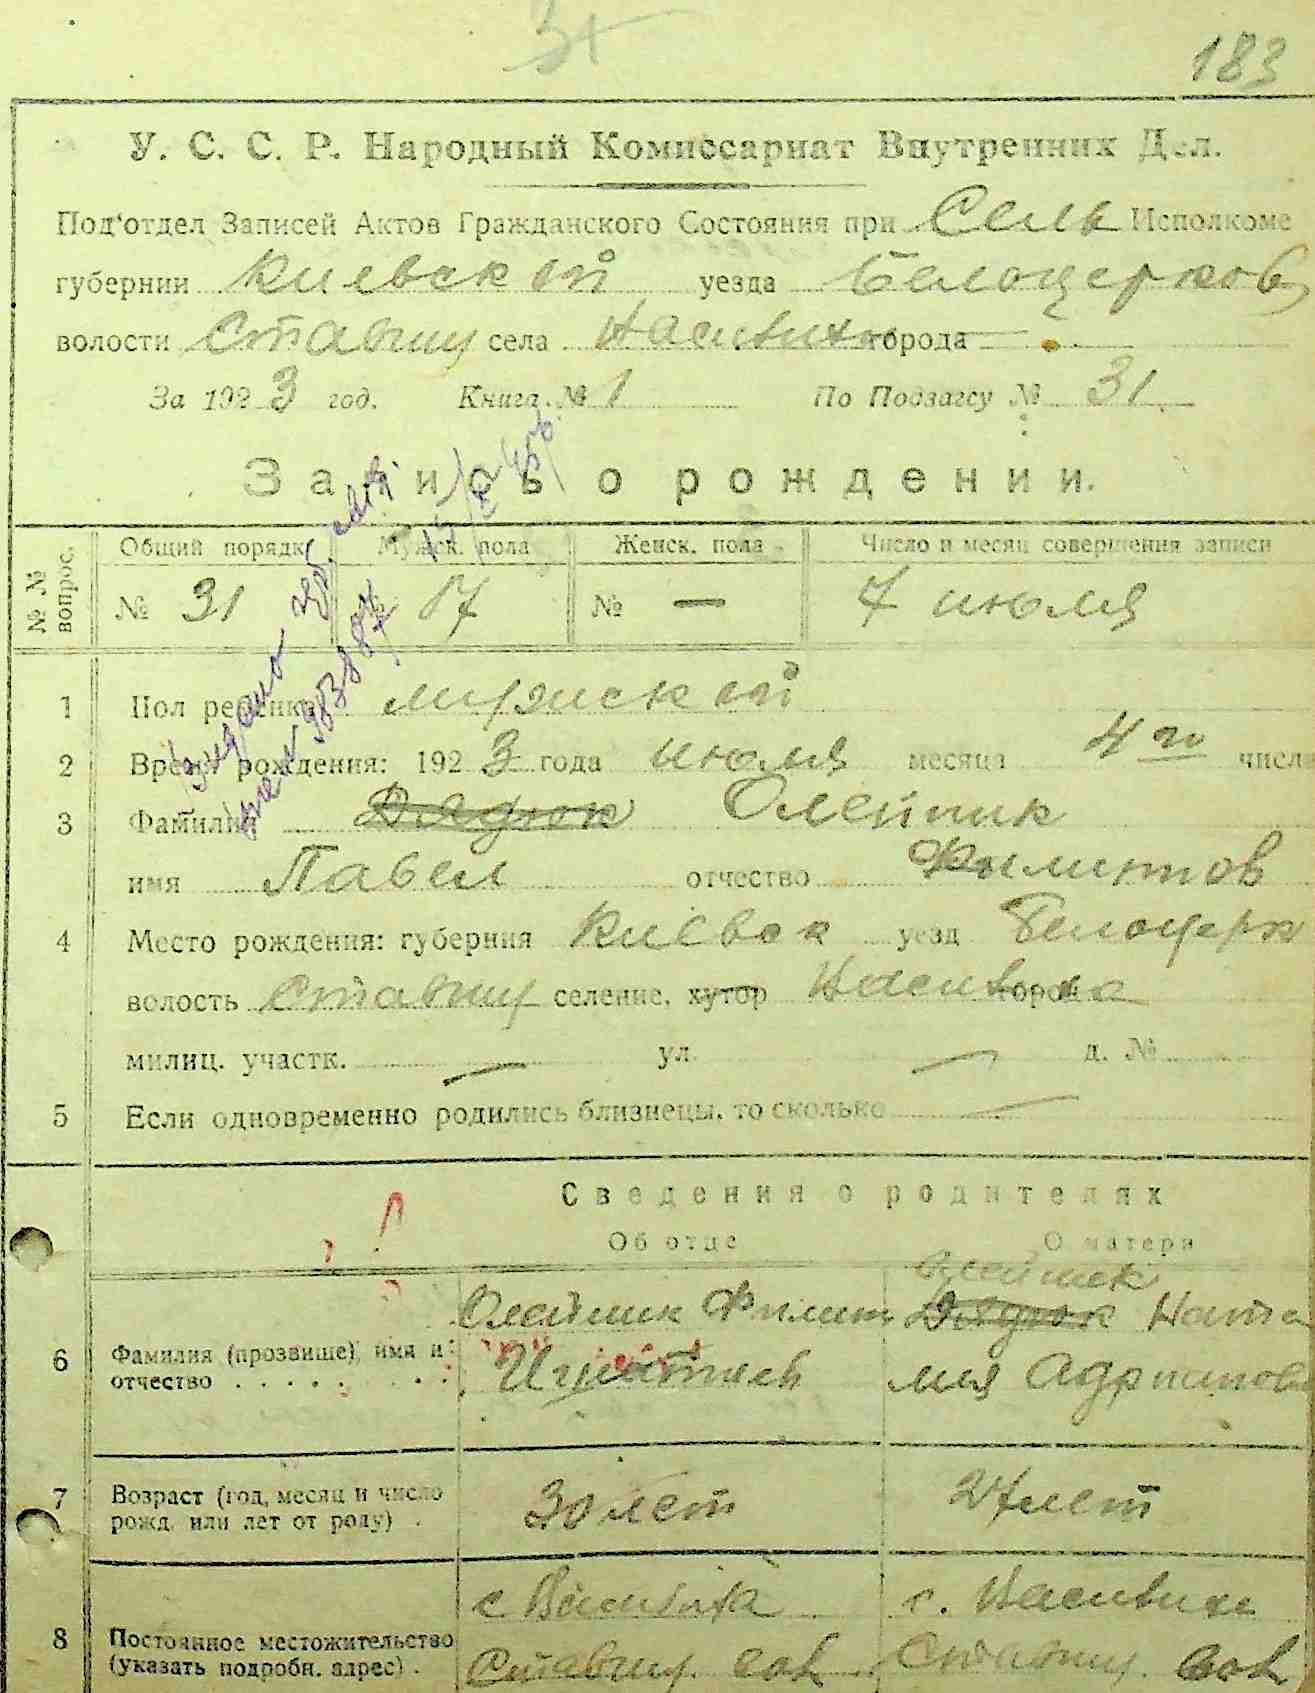 183
У. С. С. Р. Народный Комиссариат Внутренних Дел.
Под'отдел Записей Актов Гражданского Состояния при Сель Исполкоме
губернии Киевской уезда Белоцерков
волости Ставищ села города
За 1923 год. Книга № 1 По Подзагсу № 31
Запись о рождении.
№№ вопрос. Общий порядк. Мужск. пола Женск. пола Число и месяц совершения записи
№ 31 17 № — 7 июля
1 Пол ребенка мужской
2 Время рождения: 1923 года июля месяца 4го числа
3 Фамилия Дядюк Олейник
имя Павел отчество
4 Место рождения: губерния Киевск уезд Белоцерк
волость Ставищ селение, хутор город
милиц. участк. — ул. — д. №
5 Если одновременно родились близнецы, то сколько —
Сведения о родителях
Об отце О матери
Олейник
Олейник Филип Дядюк Ната
6 Фамилия (прозвище), имя и отчество лия
7 Возраст (год, месяц и число рожд. или лет от роду) 30 лет 27 лет
с. с.
8 Постоянное местожительство (указать подробн. адрес). Ставищ. вол Ставищ. вол